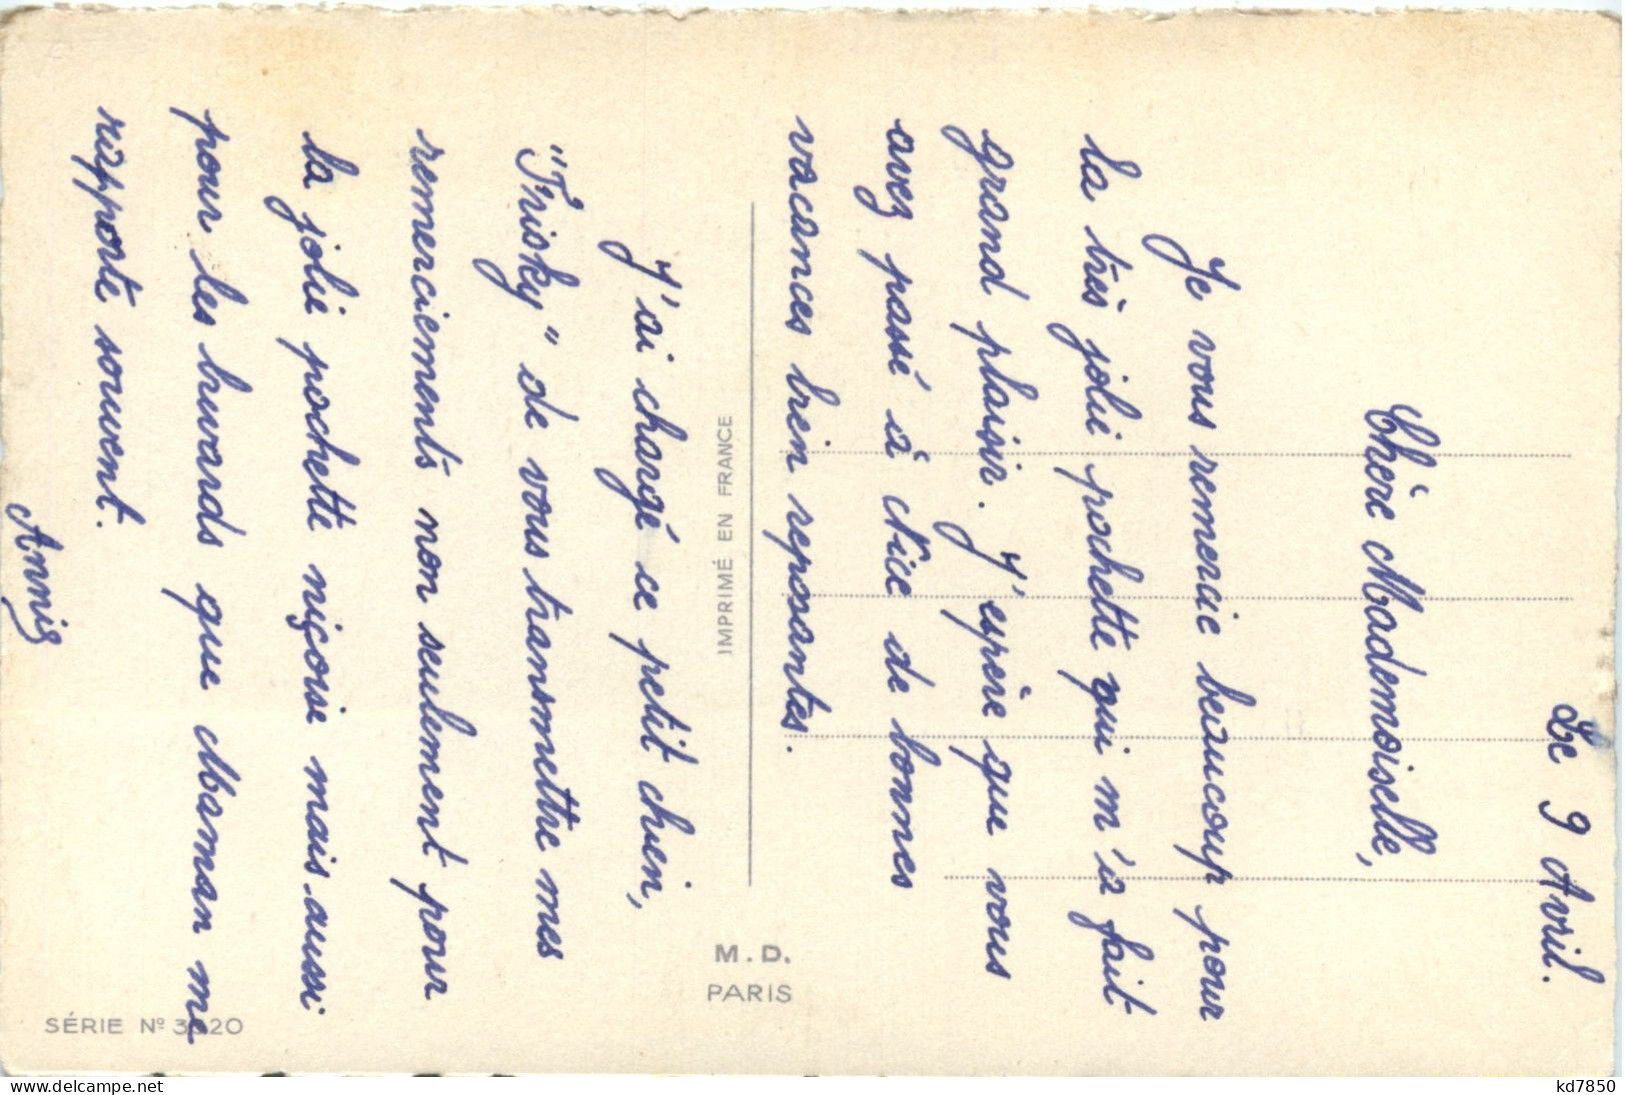 Le 9 Avril.
Chère Mademoiselle,
Je vous remercie beaucoup pour
la très jolie pochette qui m'a fait
grand plaisir. J'espère que vous
avez passé à Nice de bonnes
vacances bien reposantes.
J'ai chargé ce petit chien,
"Frisky" de vous transmettre mes
remerciements non seulement pour
la jolie pochette niçoise mais aussi
pour les buvards que Maman me
rapporte souvent.
Annie
IMPRIMÉ EN FRANCE
M. D.
PARIS
SÉRIE Nº
delcampe.net
kd7850